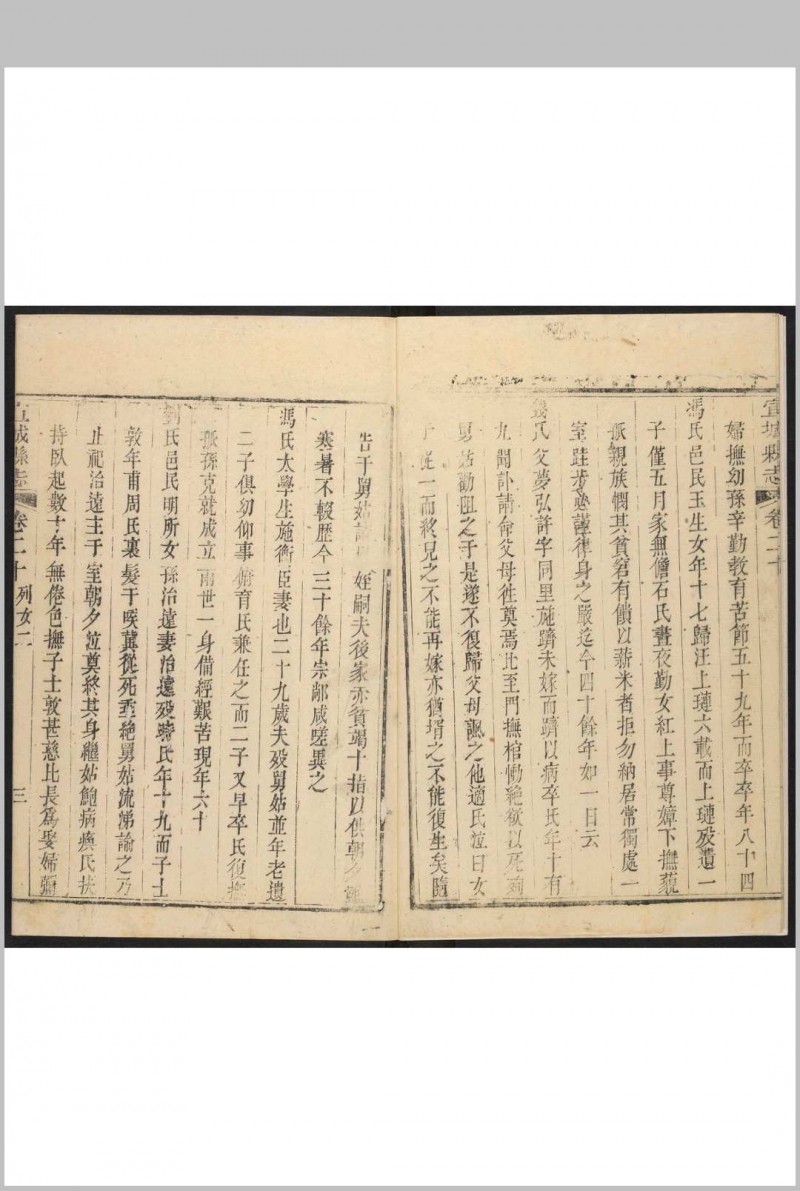 宣城縣志 卷二十
婦撫幼孫辛勤教育苦節五十九年而卒卒年八十四
馮氏邑民玉生女年十七歸汪上璉六載而上璉歿遺一
子僅五月家無儋石氏晝夜勤女紅上事尊嫜下撫藐
孤親族憫其貧窘有饋以薪米者拒勿納居常獨處一
室跬步必謹律身之嚴迄今四十餘年如一日云
氏父夢弘許字同里施躋未嫁而躋以病卒氏年十有
九聞訃請命父母往奠焉比至門撫棺慟絕欲以死殉
舅姑勸阻之于是遂不復歸父母諷之他適氏泣曰女
子從一而終兒之不能再嫁亦猶壻之不能復生矣隨
告于舅姑 姪嗣夫後家亦貧竭十指以供朝夕
寒暑不輟歷今三十餘年宗鄰咸嗟異之
馮氏太學生施衡臣妻也二十九歲夫歿舅姑並年老遺
二子俱幼仰事俯育氏兼任之而二子又早卒氏復撫
孤孫克就成立兩世一身備經艱苦現年六十
劉氏邑民明所女孫治遠妻治遠歿時氏年十九而子士
敦年甫周氏裹髮于喉冀從死垂絕舅姑流涕諭之乃
止祀治遠主于室朝夕泣奠終其身繼姑鮑病癱氏扶
持臥起數十年無倦色撫子士敦甚慈比長爲娶婦
宣城縣志 卷二十 列女二 三